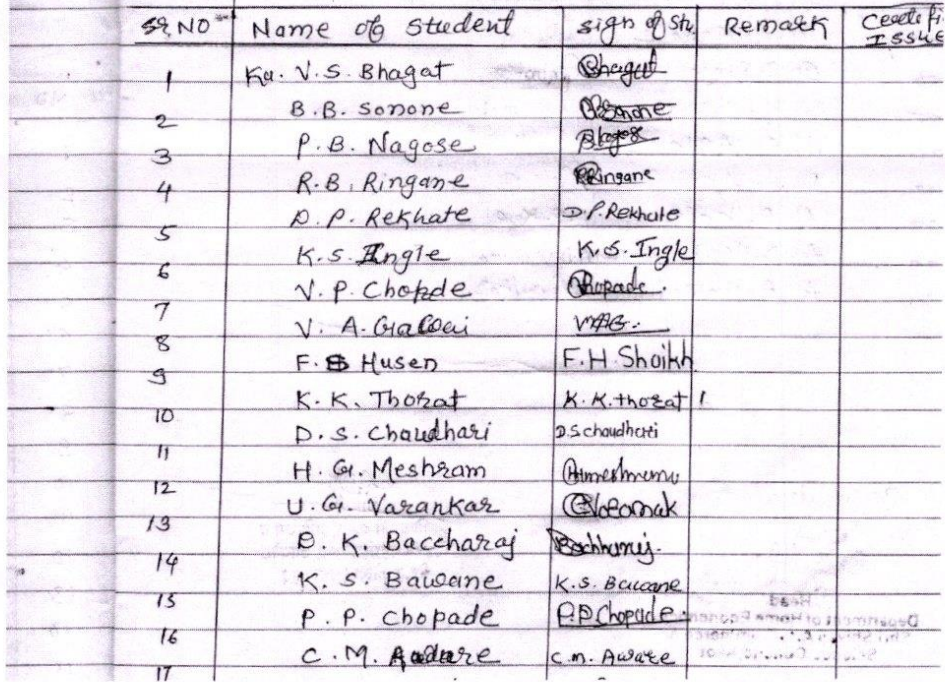 Sr. NO Name of Student sign of Stu. Remark ISSUE
1 Ku. V. S. Bhagat Bhagat
2 B. B. Sonone BBSonone
3 P. B. Nagose
4 R. B. Ringane RRingane
5 D. P. Rekhate D. P. Rekhate
6 K. S. Ingle K. S. Ingle
7 V. P. Chopde Chopade.
8 V. A. Gawai VAG.
9 F. Husen F. H. Shaikh
10 K. K. Thorat K. K. thorat
11 D. S. Chaudhari D. S chaudhari
12 H. G. Meshram
13 U. G. Varankar
14 D. K. Baccharaj Bachharaj.
15 K. S. Bawane K. S. Bawane
16 P. P. Chopade P. P. Chopade.
17 C. M. Aware C. m. Aware
Head
Department of Home